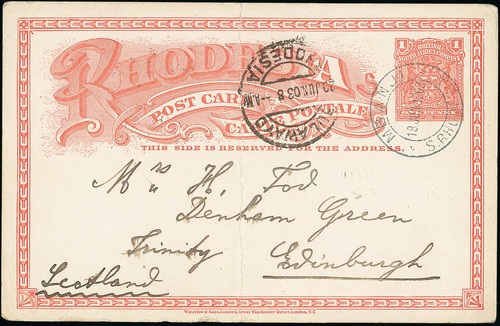 RHODESIA
POST CARD
CARTE POSTALE
THIS SIDE IS RESERVED FOR THE ADDRESS.
1
BRITISH
SOUTH AFRICA COMPANY
1
PENNY
RHODESIA
JUN 03 8 - A.M
BULAWAYO
S.RHO
Mrs H. Tod
Denham Green
Trinity
Edinburgh
Scotland
Waterlow & Sons, Limited, Great Winchester Street, London, E.C.